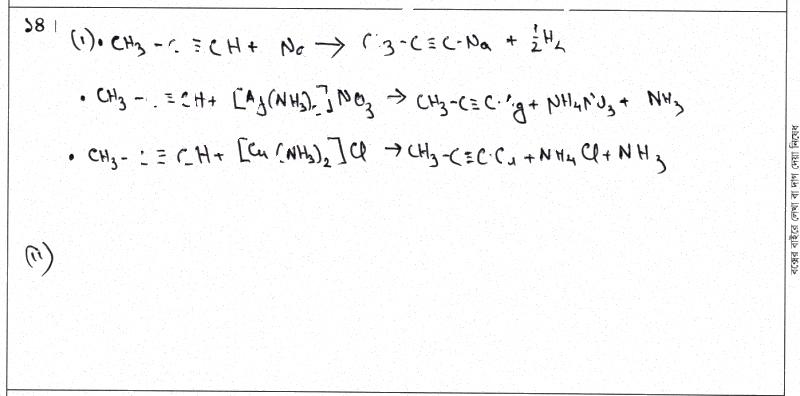 ১৪।
(i). CH3 - C ≡ CH + Na → C 3 - C ≡ C - Na + 1/2 H2
. CH3 - . ≡ CH + [Ag(NH3)2]NO3 → CH3 - C ≡ C - Ag + NH4NO3 + NH3
. CH3 - C ≡ CH + [Cu(NH3)2]Cl → CH3 - C ≡ C - Cu + NH4Cl + NH3
(ii)
বক্সের বাইরে লেখা বা দাগ দেয়া নিষেধ